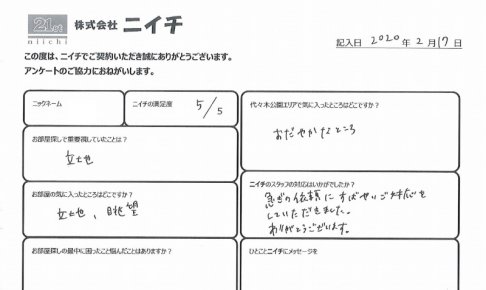 21st
niichi
株式会社 ニイチ
記入日 2020 年 2 月 17 日
この度は、ニイチでご契約いただき誠にありがとうございます。
アンケートのご協力におねがいします。
ニックネーム
ニイチの満足度 5/5
代々木公園エリアで気に入ったところはどこですか？
おだやかなところ
お部屋探しで重要視していたことは？
立地
お部屋の気に入ったところはどこですか？
立地、眺望
ニイチのスタッフの対応はいかがでしたか？
急ぎの依頼にすばやいご対応を
していただきました。
ありがとうございます。
お部屋探しの最中に困ったこと悩んだことはありますか？
ひとことニイチにメッセージを